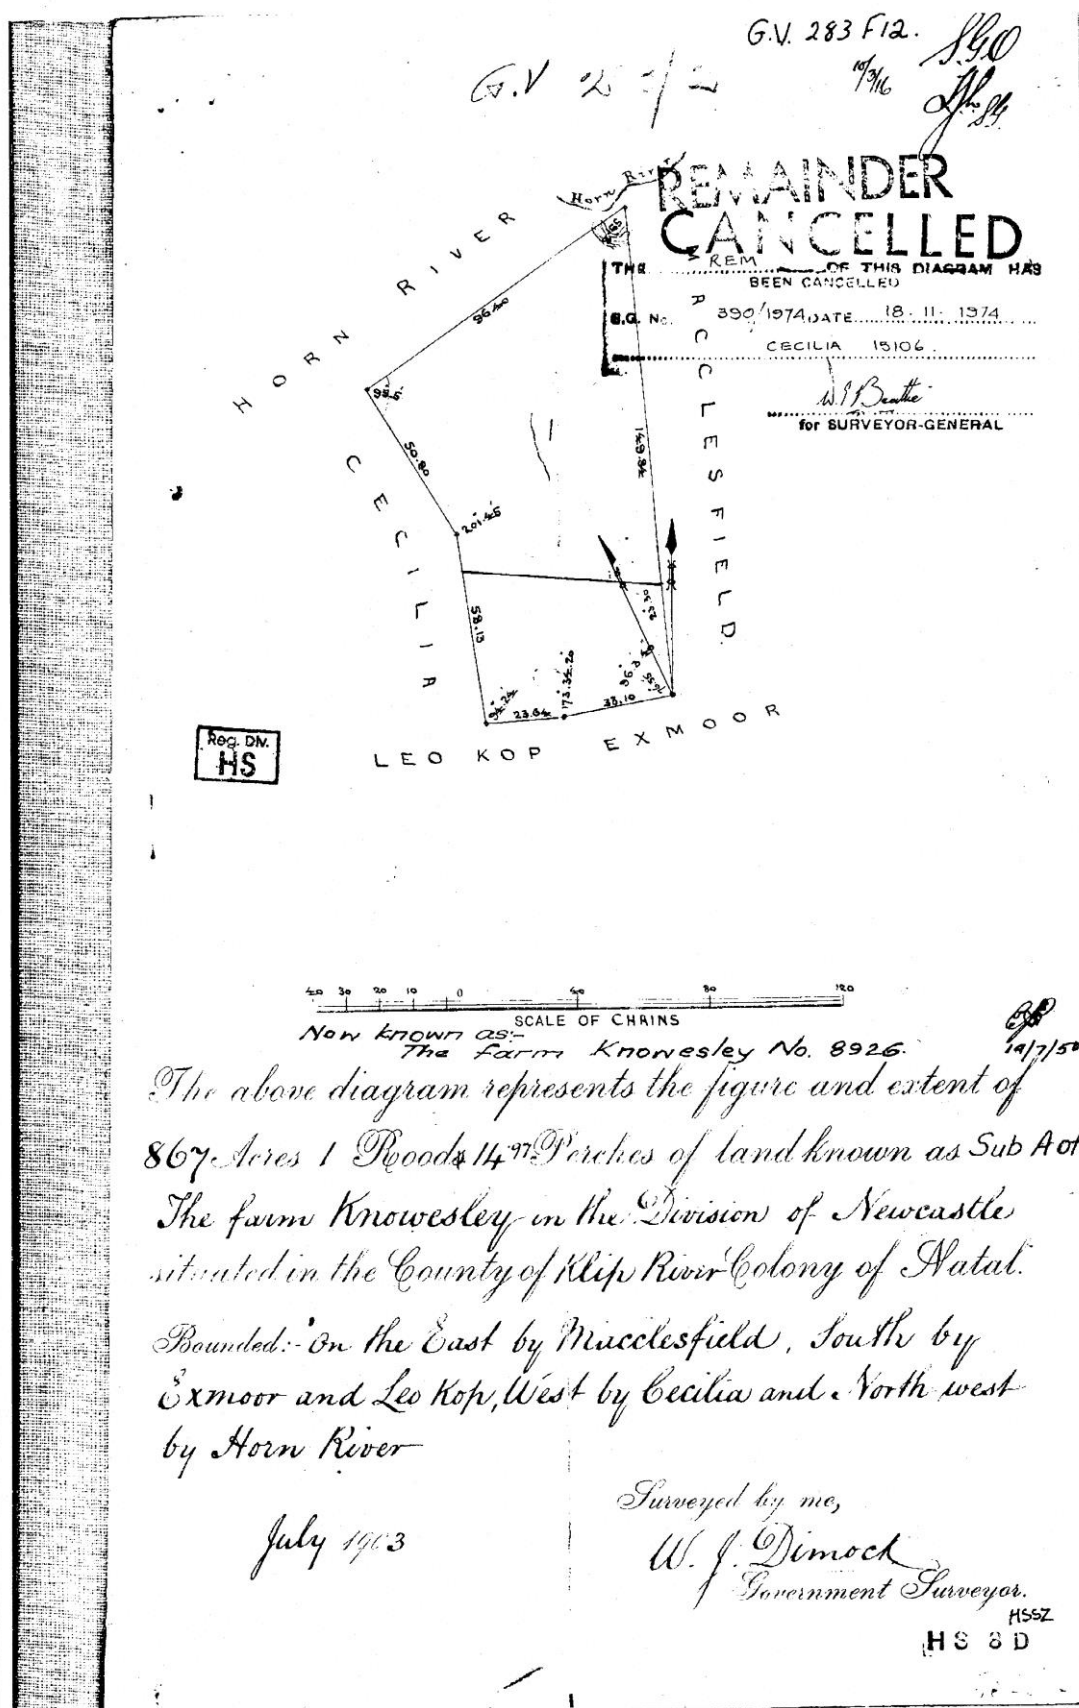 G.V. 283 F12.
SGO
10/3/16
G.V
Horn River
REMAINDER
CANCELLED
THE REM OF THIS DIAGRAM HAS
BEEN CANCELLED
S.G. No. 390/1974 DATE 18. 11. 1974
CECILIA 15106.
for SURVEYOR-GENERAL
HORN RIVER
96.40
95.5
50.80
201.45
149.84
CECILIA
MACCLESFIELD.
58.13
94.24
23.64
173.34.20
33.10
LEO KOP EXMOOR
Reg. DIV.
HS
40 30 20 10 0 40 80 120
SCALE OF CHAINS
Now known as:-
The farm Knowesley No. 8926.
The above diagram represents the figure and extent of
867 Acres 1 Roods 14.97 Perches of land known as Sub A of
The farm Knowesley in the Division of Newcastle
situated in the County of Klip River Colony of Natal.
Bounded:- On the East by Macclesfield, South by
Exmoor and Leo Kop, West by Cecilia and North west
by Horn River
Surveyed by me,
July 1903
W. J. Dimock
Government Surveyor.
HSSZ
HS 8D